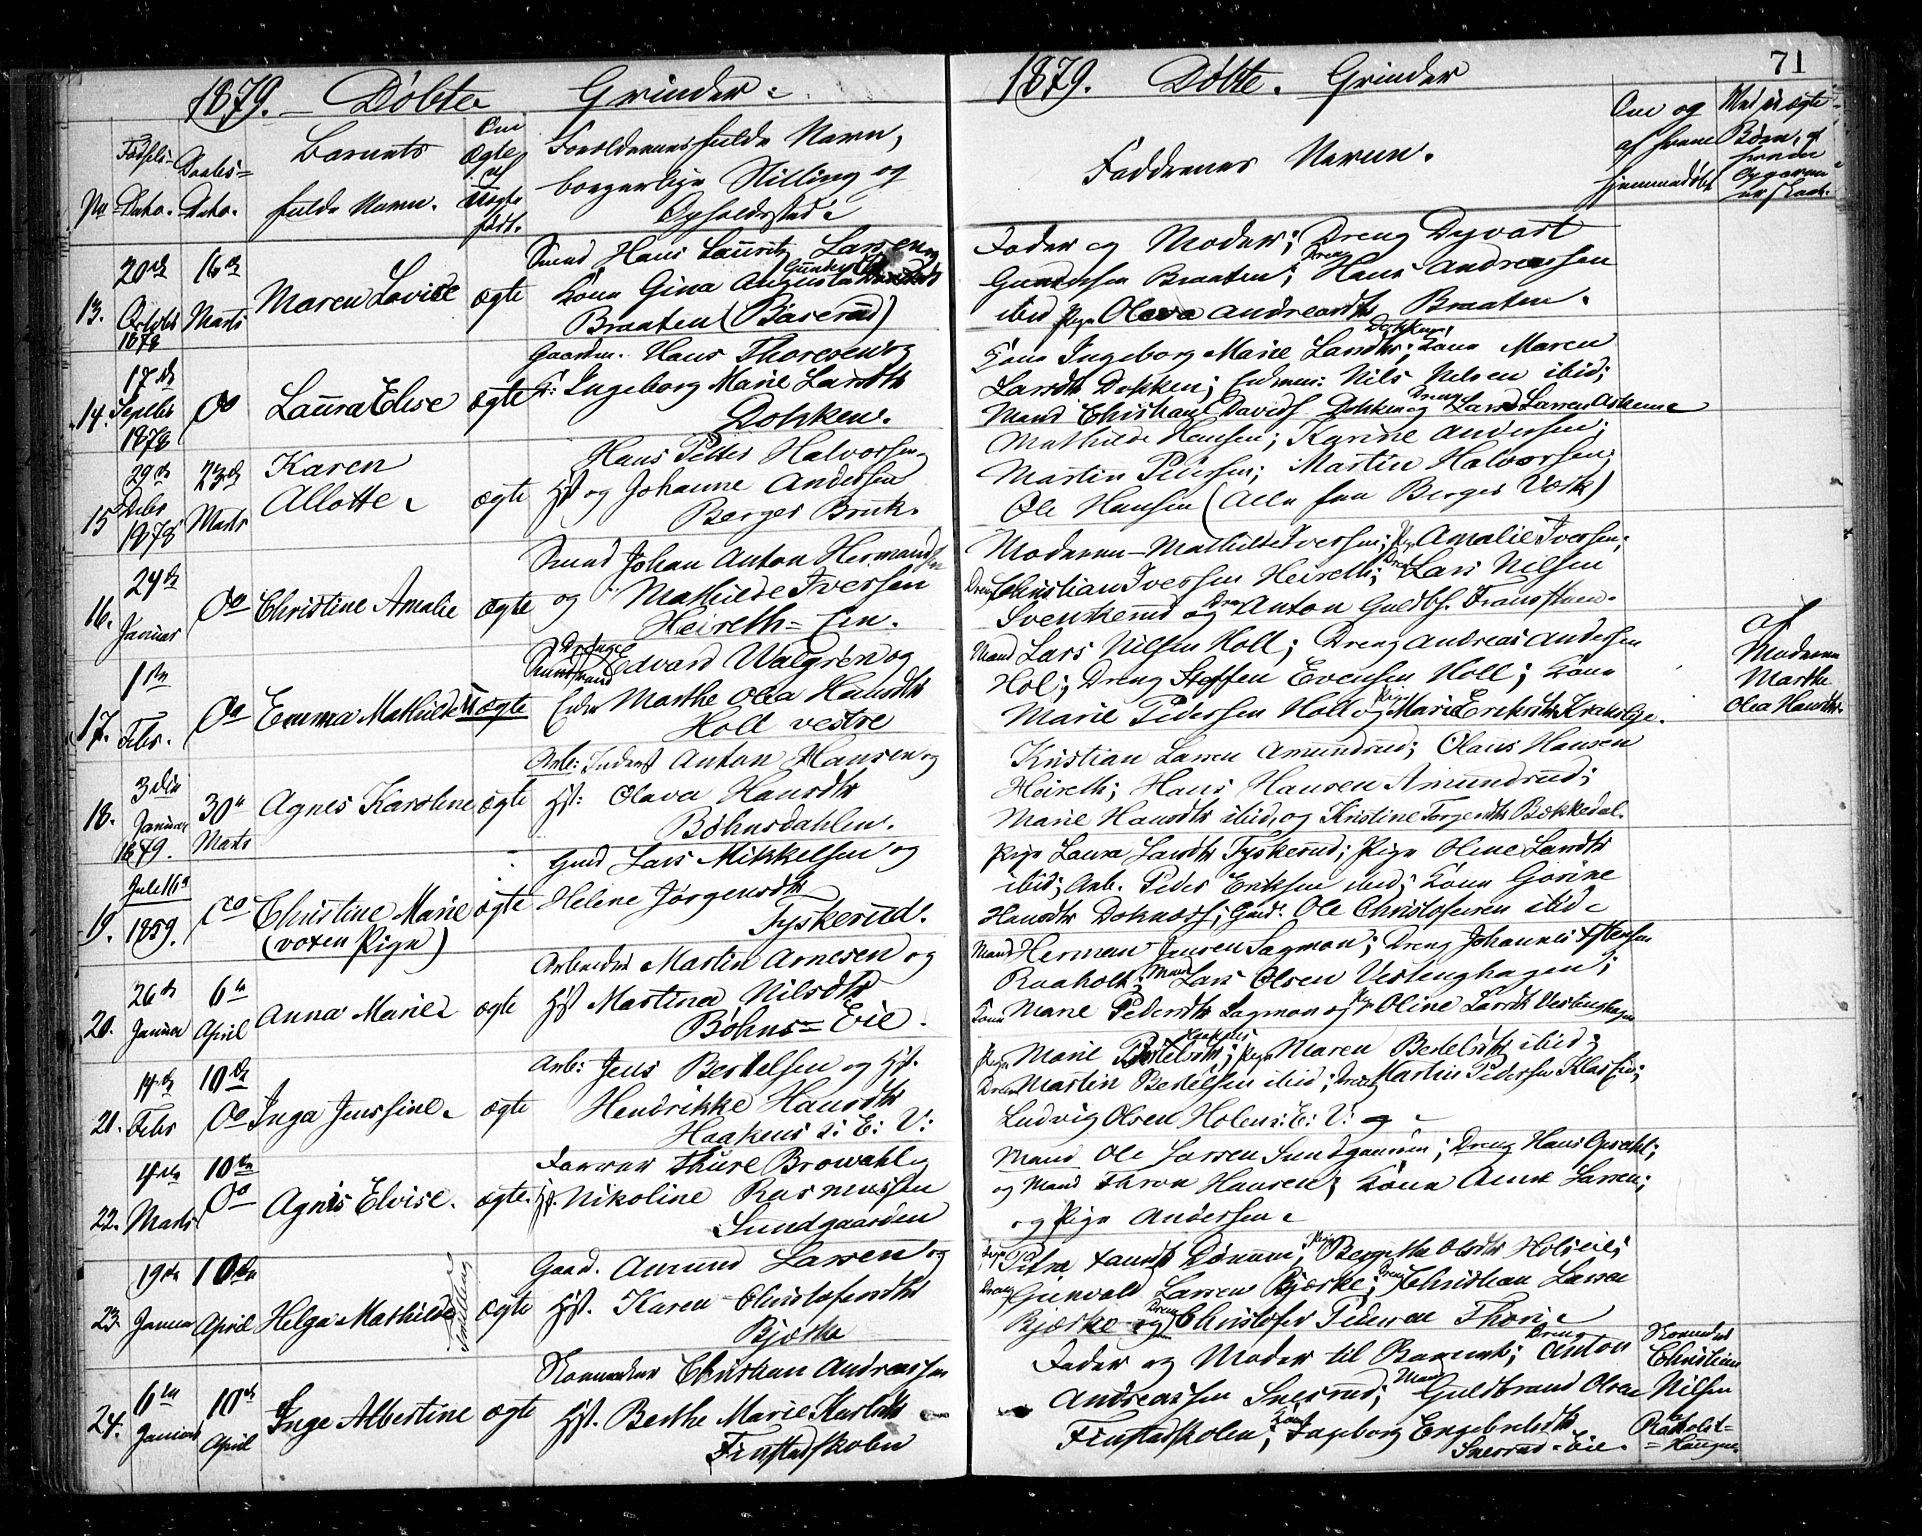 1879. Døbte Grinder.
No Fødsels-Dato. Daabs-Dato. Barnets fulde Navn. Om ægte el. uægte født. Forældrenes fulde Navn, borgerlige Stilling og Opholdssted.
13. 20de October 1878 16de Marts Maren Lovise ægte
Smed Hans Lauritz Larsen og
Kone Gina Augusta
Braaten (Bärerud)
14. 17de Septbr 1878 Do Laura Elise ægte
Gaardm. Hans Thoresen og
K: Ingeborg Marie Larsdtr
Dokken.
15 29de Decbr 1878 23de Marts Karen Allotte ægte
Hans Petter Halvorsen
Hst og Johanne Andersen
Berger Brug.
16. 24de Januar Do Christine Amalie ægte
Smed Johan Anton Hermandsen
og Mathilde Iversen
Heireth-Ein.
17. 1ste Febr. Do Emma Mathilde uægte
Edvard Walgrén og
Marthe Olea Hansdtr
Holl vestre
18. 3die Januar 1879. 30te Marts Agnes Karoline ægte
Arb: Inderst Anton Hansen og
Hst: Olava Hansdtr
Bøhnsdahlen.
19. Juli 16de 1859. Do Christine Marie (voxen Pige) ægte
Gmd Lars Mikkelsen og
Helene Jørgensdtr
Tyskerud.
20. 26de Januar 6te April Anna Marie ægte
Arbeider Martin Arnesen og
Hst Martina Nilsdtr
Bøhns-Eie.
21. 4de Febr 10de Do Inga Jenssine ægte
Arb: Jens Bertelsen og Hst.
Hendrikke Hansdtr
Haakens s: E: V:
22. 4de Marts 10de Do Agnes Elvise. ægte.
Thure Browahl og
Hst. Nikoline Rasmussen
Sundgaarden
23. 19de Januar 10de April Helga Mathilde ægte
Gaard. Amund Larsen og
Hst. Karen Christofersdtr
Bjørke
24. 6te Januar 10de April Inge Albertine ægte
Skomager Christian Andreassen
Hst. Berthe Marie Karlsdtr
Finstadskolen
1879. Døbte. Grinder 71
Faddernes Navne. Om og af hvem hjemmedøbt
Ved uægte Børn, af hvem Opgaven er skeet.
Fader og Moder; Dreng Dyvart
Gundersen Braaten; Dreng Hans Andreassen
ibid Pige Olava Andreasdtr Braaten.
Kone Ingeborg Marie Larsdtr Dokken; Kone Maren
Larsdtr Dokken; Nils Nilsen ibid;
Mand Christian Davids. Dokken og Dreng Lars Larsen
Mathilde Hansen; Karine Andersen;
Martin Petersen; Martin Halvorsen;
Ole Hansen (Alle fra Berger Værk)
Moderen Mathilde Iversen; Pg Amalie Iversen;
Dreng Christian Iversen Heireth; Dreng Lars Nilsen
Svenkerud og Dreng Anton Guldbs.
Mand Lars Nilsen Holl; Dreng Andreas Andersen
Hol; Dreng Steffen Evensen Holl; Kone
Marie Pedersen Holl og Pige Marie Eriksdtr
af Moderen Marthe Olea Hansdtr.
Kristian Larsen Amundrud; Olaus Hansen
Heireth; Hans Hansen Amundrud;
Marie Hansdtr ibid, og Kristine Torgersdtr Bækkedal.
Pige Laura Larsdtr Tyskerud; Pige Oline Larsdtr
ibid; Arb. Peder Eriksen ibid; Kone Gorine
Hansdtr Doknæss; Gmd. Ole Christofersen ibid
Mand Herman Jensen Sagmoen; Dreng Johannes
Raaholt; Mand Lars Olsen Vestenghagen;
Kone Marie Pedersdtr Sagmoen og Pige Oline Larsdtr Vestenghagen
Pige Marie Haakens; Pige Maren Bertelsdtr ibid;
Dreng Martin Bertelsen ibid; Dreng Martin Pedersen
Ludvig Olsen Holen s: E: V:
Mand Ole Larsen Sundgaarden; Dreng Hans Opsahl;
og Mand Thron Hansen; Kone Anne Larsen;
og Pige Andersen
Pige Petra Pige Bergitha Olsdtr Holseie;
Dreng Gunvald Larsen Bjørke; Dreng Christian Larsen
Bjørke og Dreng Christofer Pedersen
Fader og Moder til Barnet; Dreng Anton
Andreassen Snesrud; Mand Guldbrand Olsen
Finstadskolen; Kone Ingeborg Engebretsdtr
Snesrud-Eie.
Skomager Christian Nilsen Raholdt-Haugen